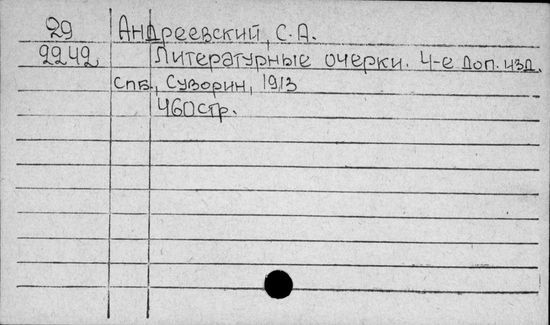 29 Андреевский, С.А.
2242 Литературные очерки. 4-е доп. изд.
Спб., Суворин, 1913
460стр.